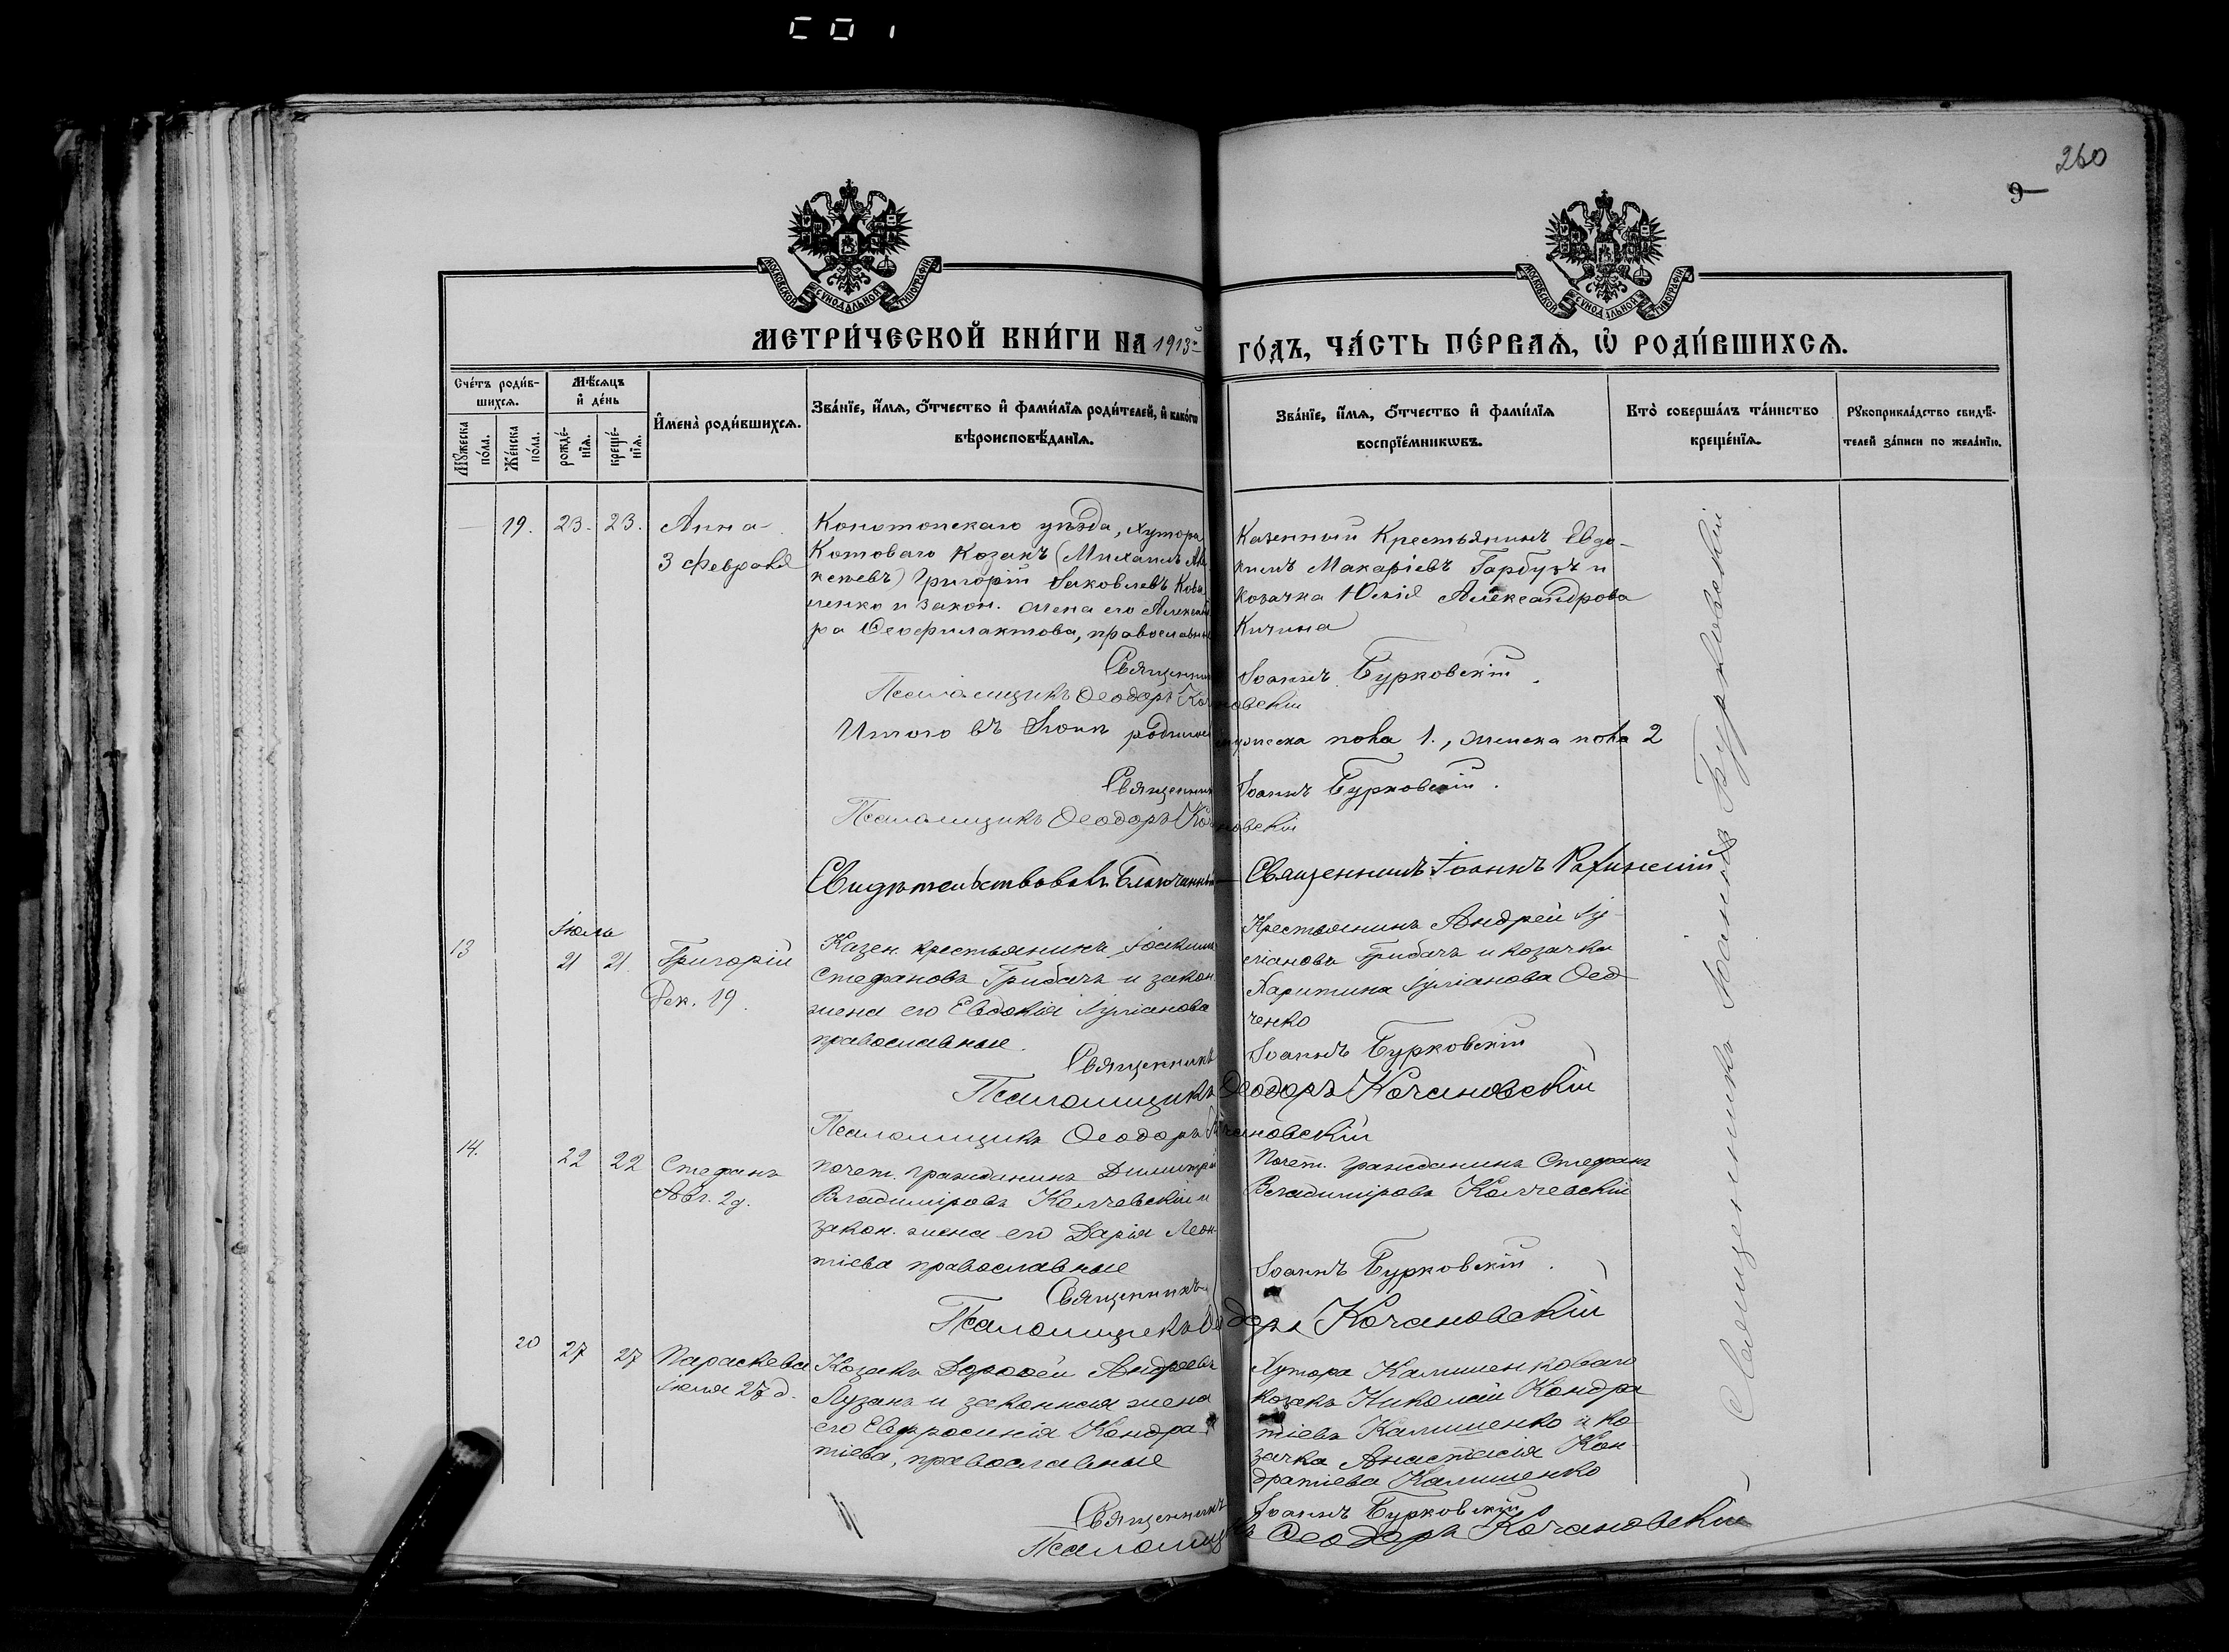 260
9
МОСКОВСКОЙ СѴНОДАЛЬНОЙ ТИПОГРАФІИ
МОСКОВСКОЙ СѴНОДАЛЬНОЙ ТИПОГРАФІИ
МЕТРИ́ЧЕСКОЙ КНИ́ГИ НА 1913й ГО́ДЪ, ЧА́СТЬ ПЕ́РВАѦ, Ѡ҆ РОДИ́ВШИХСѦ.
Сче́тъ роди́в-
шихсѧ.
Мꙋ́жеска по́ла.
Же́нска по́ла.
Мѣ́сѧцъ
и҆ де́нь
рожде́-
нїѧ.
креще́-
нїѧ.
И҆мена̀ роди́вшихсѧ.
Зва́нїе, и҆́мѧ, ѻ҆́тчество и҆ фами́лїѧ роди́телей, и҆ како́гѡ
вѣроисповѣ́данїѧ.
Зва́нїе, и҆́мѧ, ѻ҆́тчество и҆ фами́лїѧ
воспрїе́мникѡвъ.
Кто̀ соверша́лъ та́инство
креще́нїѧ.
Рꙋкоприкла́дство свидѣ́-
телей за́писи по жела́нїю.
— 19. 23. 23. Анна
3 февраля
Конотопскаго уѣзда, хутора
Котоваго Козакъ (Михаилъ
Григорій Яковлевъ
и закон. жена его
Ѳеофилактова,
Казенный Крестьянинъ Евдо-
кимъ Макаріевъ Гарбузъ и
козачка Юлія Александрова
Кичина
Священникъ Іоаннъ Бурковскій.
Псаломщикъ Ѳеодоръ Кочановскій
Итого въ Іюнѣ родилось мужеска пола 1., женска пола 2
Священникъ Іоаннъ Бурковскій.
Псаломщикъ Ѳеодоръ Кочановскій
Свидѣтельствовалъ Благочинный Священникъ Іоаннъ
Іюль
13 21 21. Григорій
Дек. 19.
Казен. крестьянинъ Іоакимъ
Стефановъ Грибачъ и закон.
жена его Евдокія Іуліанова
православные.
Крестьянинъ Андрей Іу-
ліановъ Грибачъ и козачка
Харитина Іуліанова Ѳед
ченко
Священникъ Іоаннъ Бурковскій
Псаломщикъ Ѳеодоръ Кочановскій
Псаломщикъ Ѳеодоръ Кочановскій
14. 22 22 Стефанъ
Авг. 2д.
Почет. гражданинъ Димитрій
Владиміровъ Колчевскій и
закон. жена его Дарія Леон-
тіева православные
Почет. гражданинъ Стефанъ
Владиміровъ Колчевскій
Священникъ Іоаннъ Бурковскій.
Псаломщикъ Ѳеодоръ Кочановскій
20 27 27 Параскева
Іюля 27 д.
Козакъ Дороѳей Андреевъ
Лузанъ и законная жена
его Евфросинія Кондра-
тіева, православные
Хутора Калишенковаго
козакъ Николай Кондра
тіевъ Калишенко и ко-
зачка Анастасія Кон
дратіева Калишенко
Священникъ Іоаннъ Бурковскій
Псаломщикъ Ѳеодоръ Кочановскій
Священникъ Іоаннъ Бурковскій